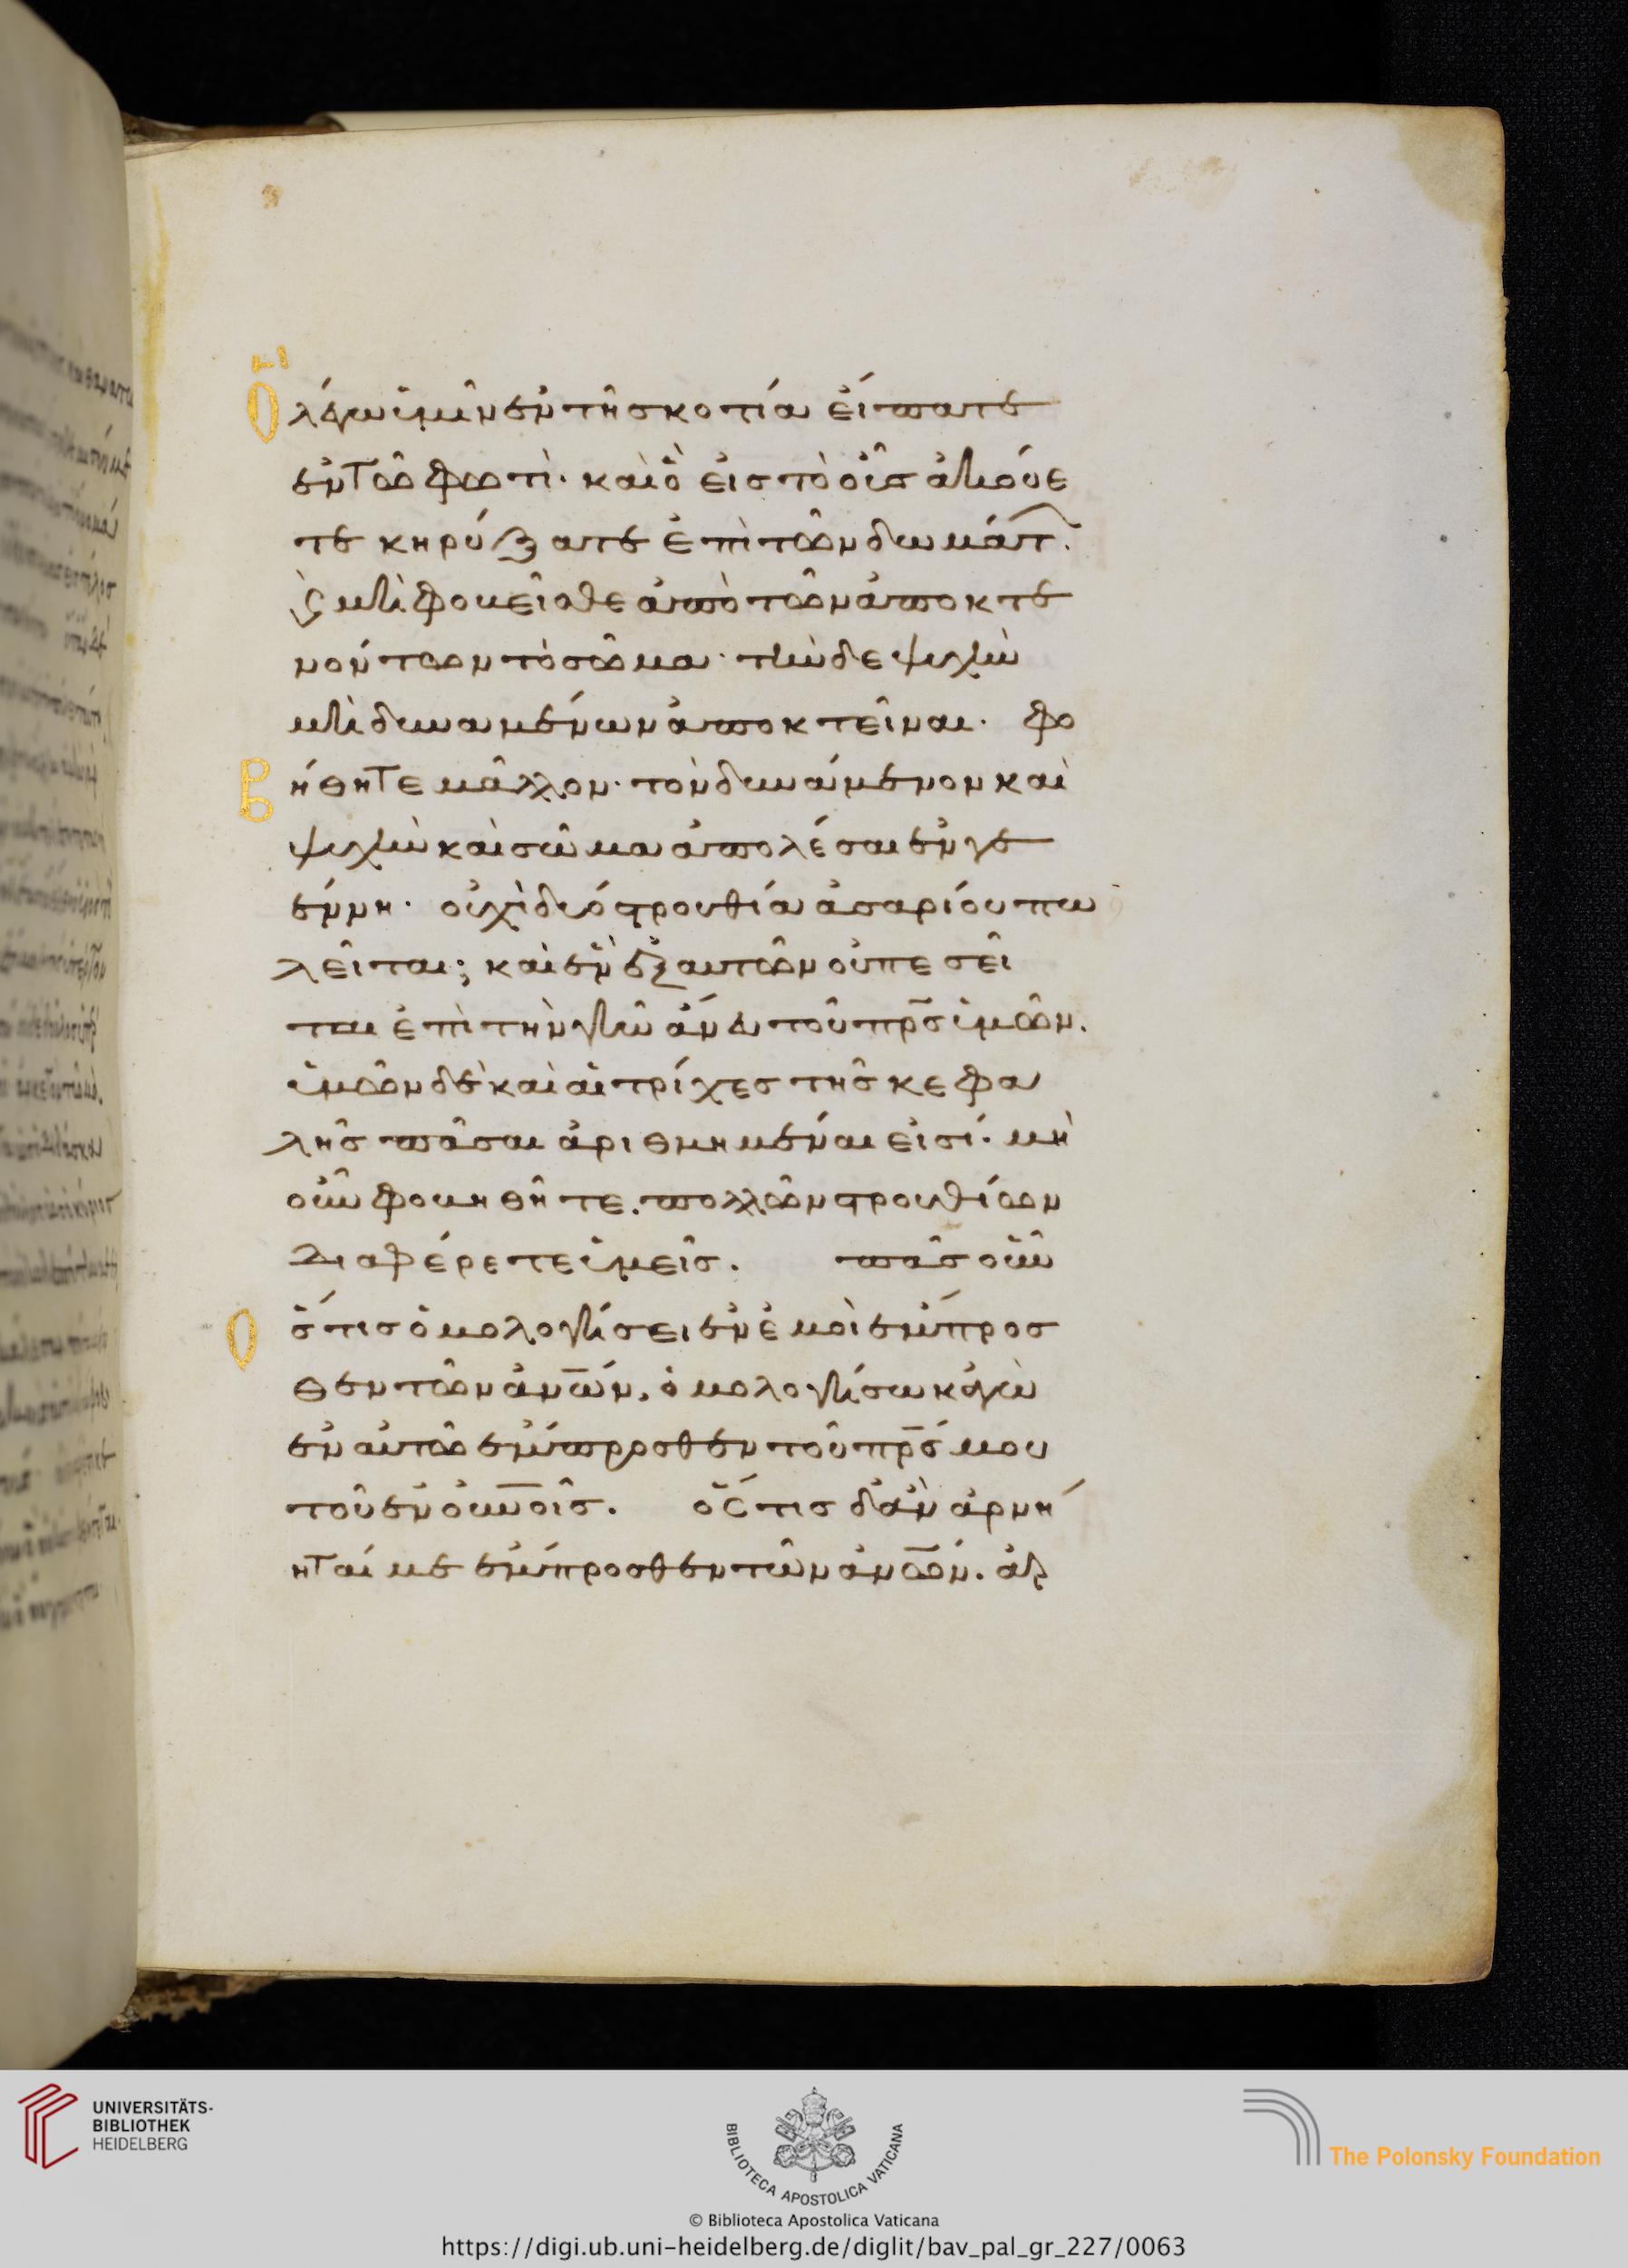 Ὃ λέγω ὑμῖν ἐν τῆ σκοτία εἴπατε
ἐν τῶ φωτὶ· καὶ ὃ εἰς τὸ οὖς ἀκούε
τε κηρύξατε ἐπὶ τῶν δωμάτ.
Ϛ μὴ φοβεῖσθε ἀπὸ τῶν ἀποκτε
νούντων τὸ σῶμα· τὴν δε ψυχὴν
μὴ δυναμένων ἀποκτεῖναι· φο
Βήθητε μᾶλλον· τὸν δυνάμενον καὶ
ψυχὴν καὶ σῶμα ἀπολέσαι ἐν γε
έννη· οὐχὶ δύο στρουθία ἀσαρίου πω
λεῖται; καὶ ἓν ἐξ αυτῶν οὐ πεσεῖ
ται ἐπὶ τὴν γῆν ἄνευ τοῦ πρ̅ς ὑμῶν.
ὑμῶν δὲ καὶ αἱ τρίχες τῆς κεφα
λῆς πᾶσαι ἀριθμημέναι εἰσί· μὴ
οὖν φοβηθῆτε. πολλῶν στρουθίων
διαφέρετε ὑμεῖς. πᾶς οὖν
Ὅστις ὁμολογήσει ἐν ἐμοὶ ἔμπροσ
θεν τῶν ἀν̅ων, ὁμολογήσω κἀγὼ
ἐν αὐτῶ ἔμπροσθεν τοῦ πρ̅ς μου
τοῦ ἐν οὐν̅οῖς. ὅστις δ' ἂν ἀρνή
ηταί με ἔμπροσθεν τῶν ἀν̅ων. ἀρ
UNIVERSITÄTS-
BIBLIOTHEK
HEIDELBERG
BIBLIOTECA APOSTOLICA VATICANA
The Polonsky Foundation
© Biblioteca Apostolica Vaticana
https://digi.ub.uni-heidelberg.de/diglit/bav_pal_gr_227/0063